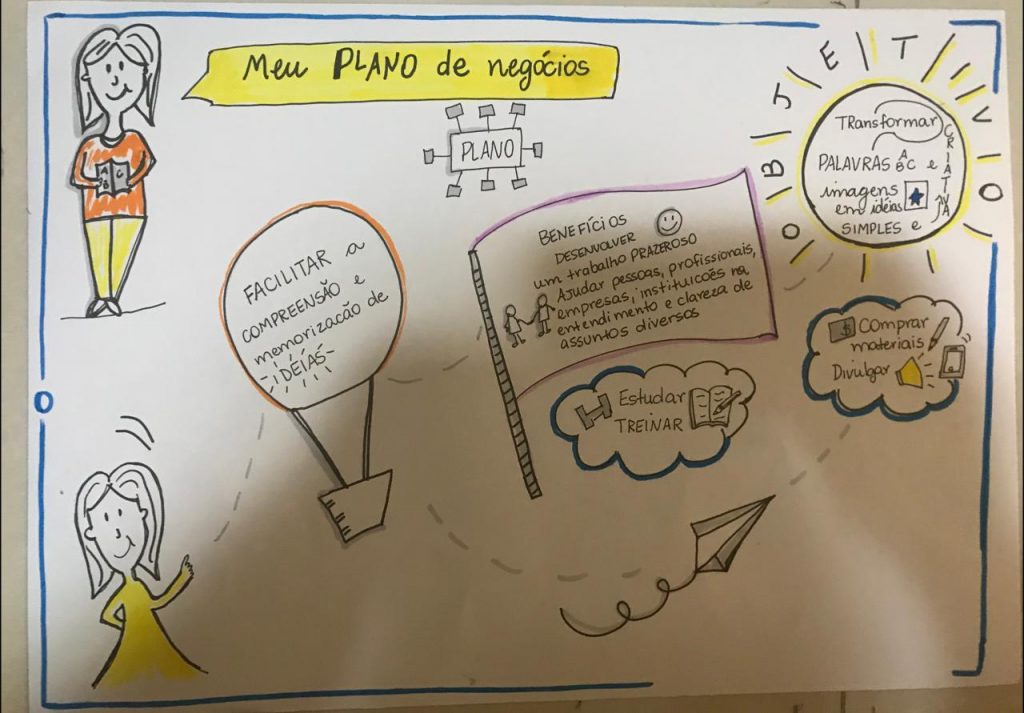 Meu PLANO de negócios
PLANO
OBJETIVO
TRansformar
PALAVRAS ABC e
imagens
em idéias
SIMPLES e
CRIATIVAS
A B C
FACILITAR a
COMPREENSÃO e
memorizacão de
IDÉIAS
BENEFÍCIOS
DESENVOLVER
um trabalho PRAZEROSO
Ajudar pessoas, profissionais,
empresas, instituicoēs na
entendimento e clareza de
assuntos diversos
Estudar
TREINAR
$ COmprar
materiais
Divulgar